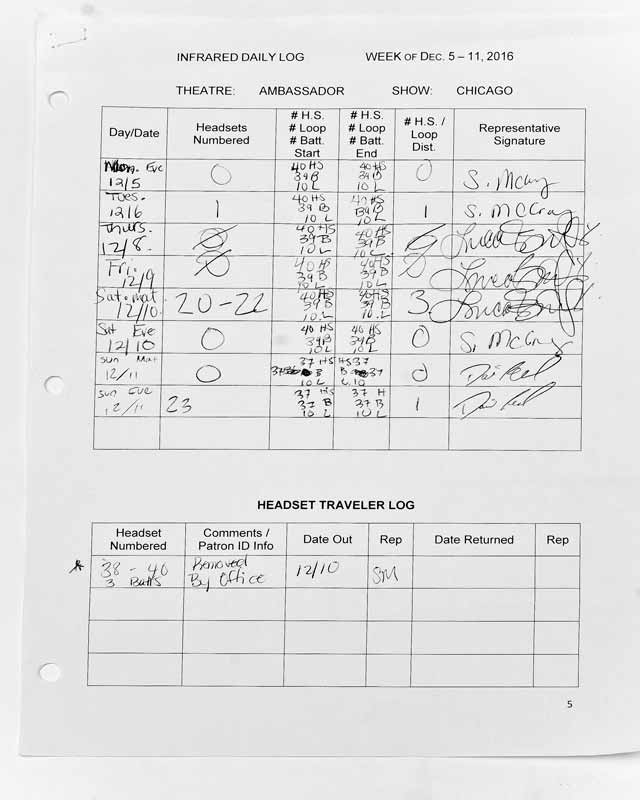 INFRARED DAILY LOG WEEK OF DEC. 5 – 11, 2016
THEATRE: AMBASSADOR SHOW: CHICAGO
Day/Date Headsets Numbered # H.S. # Loop # Batt. Start # H.S. # Loop # Batt. End # H.S. / Loop Dist. Representative Signature
Mon. Eve 12/5 0 40 HS 39 B 10 L 40 HS 39 B 10 L 0 S. McCray
Tues. 12/6 1 40 HS 39 B 10 L 40 HS 39 B 10 L 1 S. McCray
Thurs. 12/8 0 40 HS 39 B 10 L 40 HS 39 B 10 L
Fri. 12/9 0 40 HS 39 B 10 L 40 HS 39 B 10 L 0
Sat. mat 12/10 20-22 40 HS 39 B 10 L 40 HS 39 B 10 L 3
Sat Eve 12/10 0 40 HS 39 B 10 L 40 HS 39 B 10 L 0 S. McCray
Sun Mat 12/11 0 37 HS B 10 L HS 37 B 37 L 10 0
Sun Eve 12/11 23 37 HS 37 B 10 L 37 H 37 B 10 L 1
HEADSET TRAVELER LOG
Headset Numbered Comments / Patron ID Info Date Out Rep Date Returned Rep
* 38 - 40 3 Batts Removed By Office 12/10 SM
5